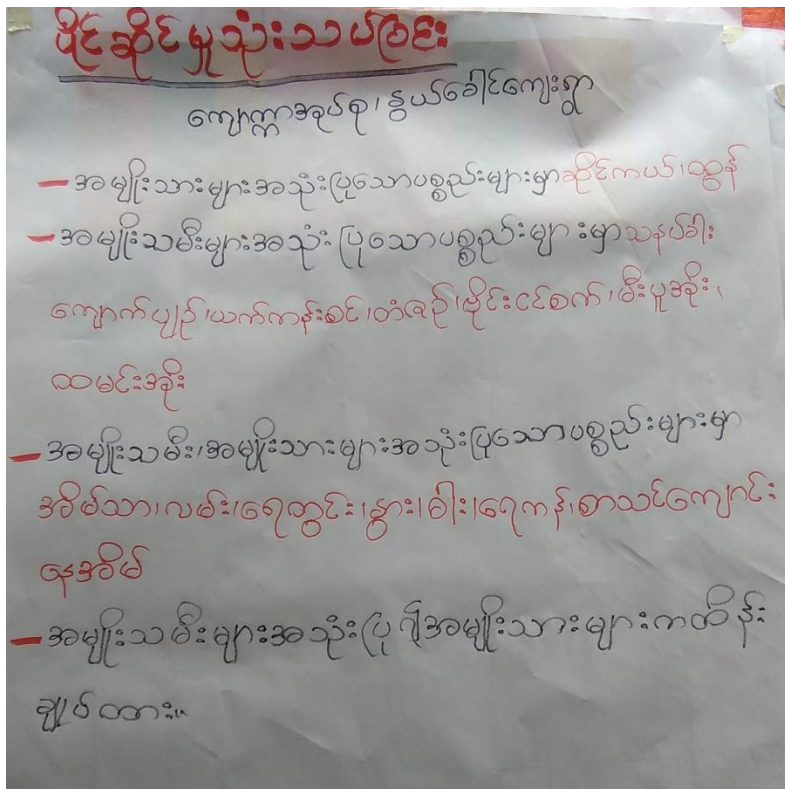 ပိုင်ဆိုင်မှုသုံးသပ်ခြင်း
ကျောက္ကာအုပ်စု၊ နွယ်ခေါင်ကျေးရွာ
- အမျိုးသားများအသုံးပြုသောပစ္စည်းများမှာဆိုင်ကယ်၊ထွန်
- အမျိုးသမီးများအသုံးပြုသောပစ္စည်းများမှာသနပ်ခါး
ကျောက်ပျဉ်၊ယက်ကန်းစင်၊တံစဉ်၊ဗိုင်းငင်စက်၊မီးပူအိုး၊
ထမင်းအိုး
- အမျိုးသမီး၊အမျိုးသားများအသုံးပြုသောပစ္စည်းများမှာ
အိမ်သာ၊လမ်း၊ရေတွင်း၊နွား၊ဓါး၊ရေကန်၊စာသင်ကျောင်း
နေအိမ်
- အမျိုးသမီးများအသုံးပြု၍အမျိုးသားများကထိန်း
ချုပ်ထား။